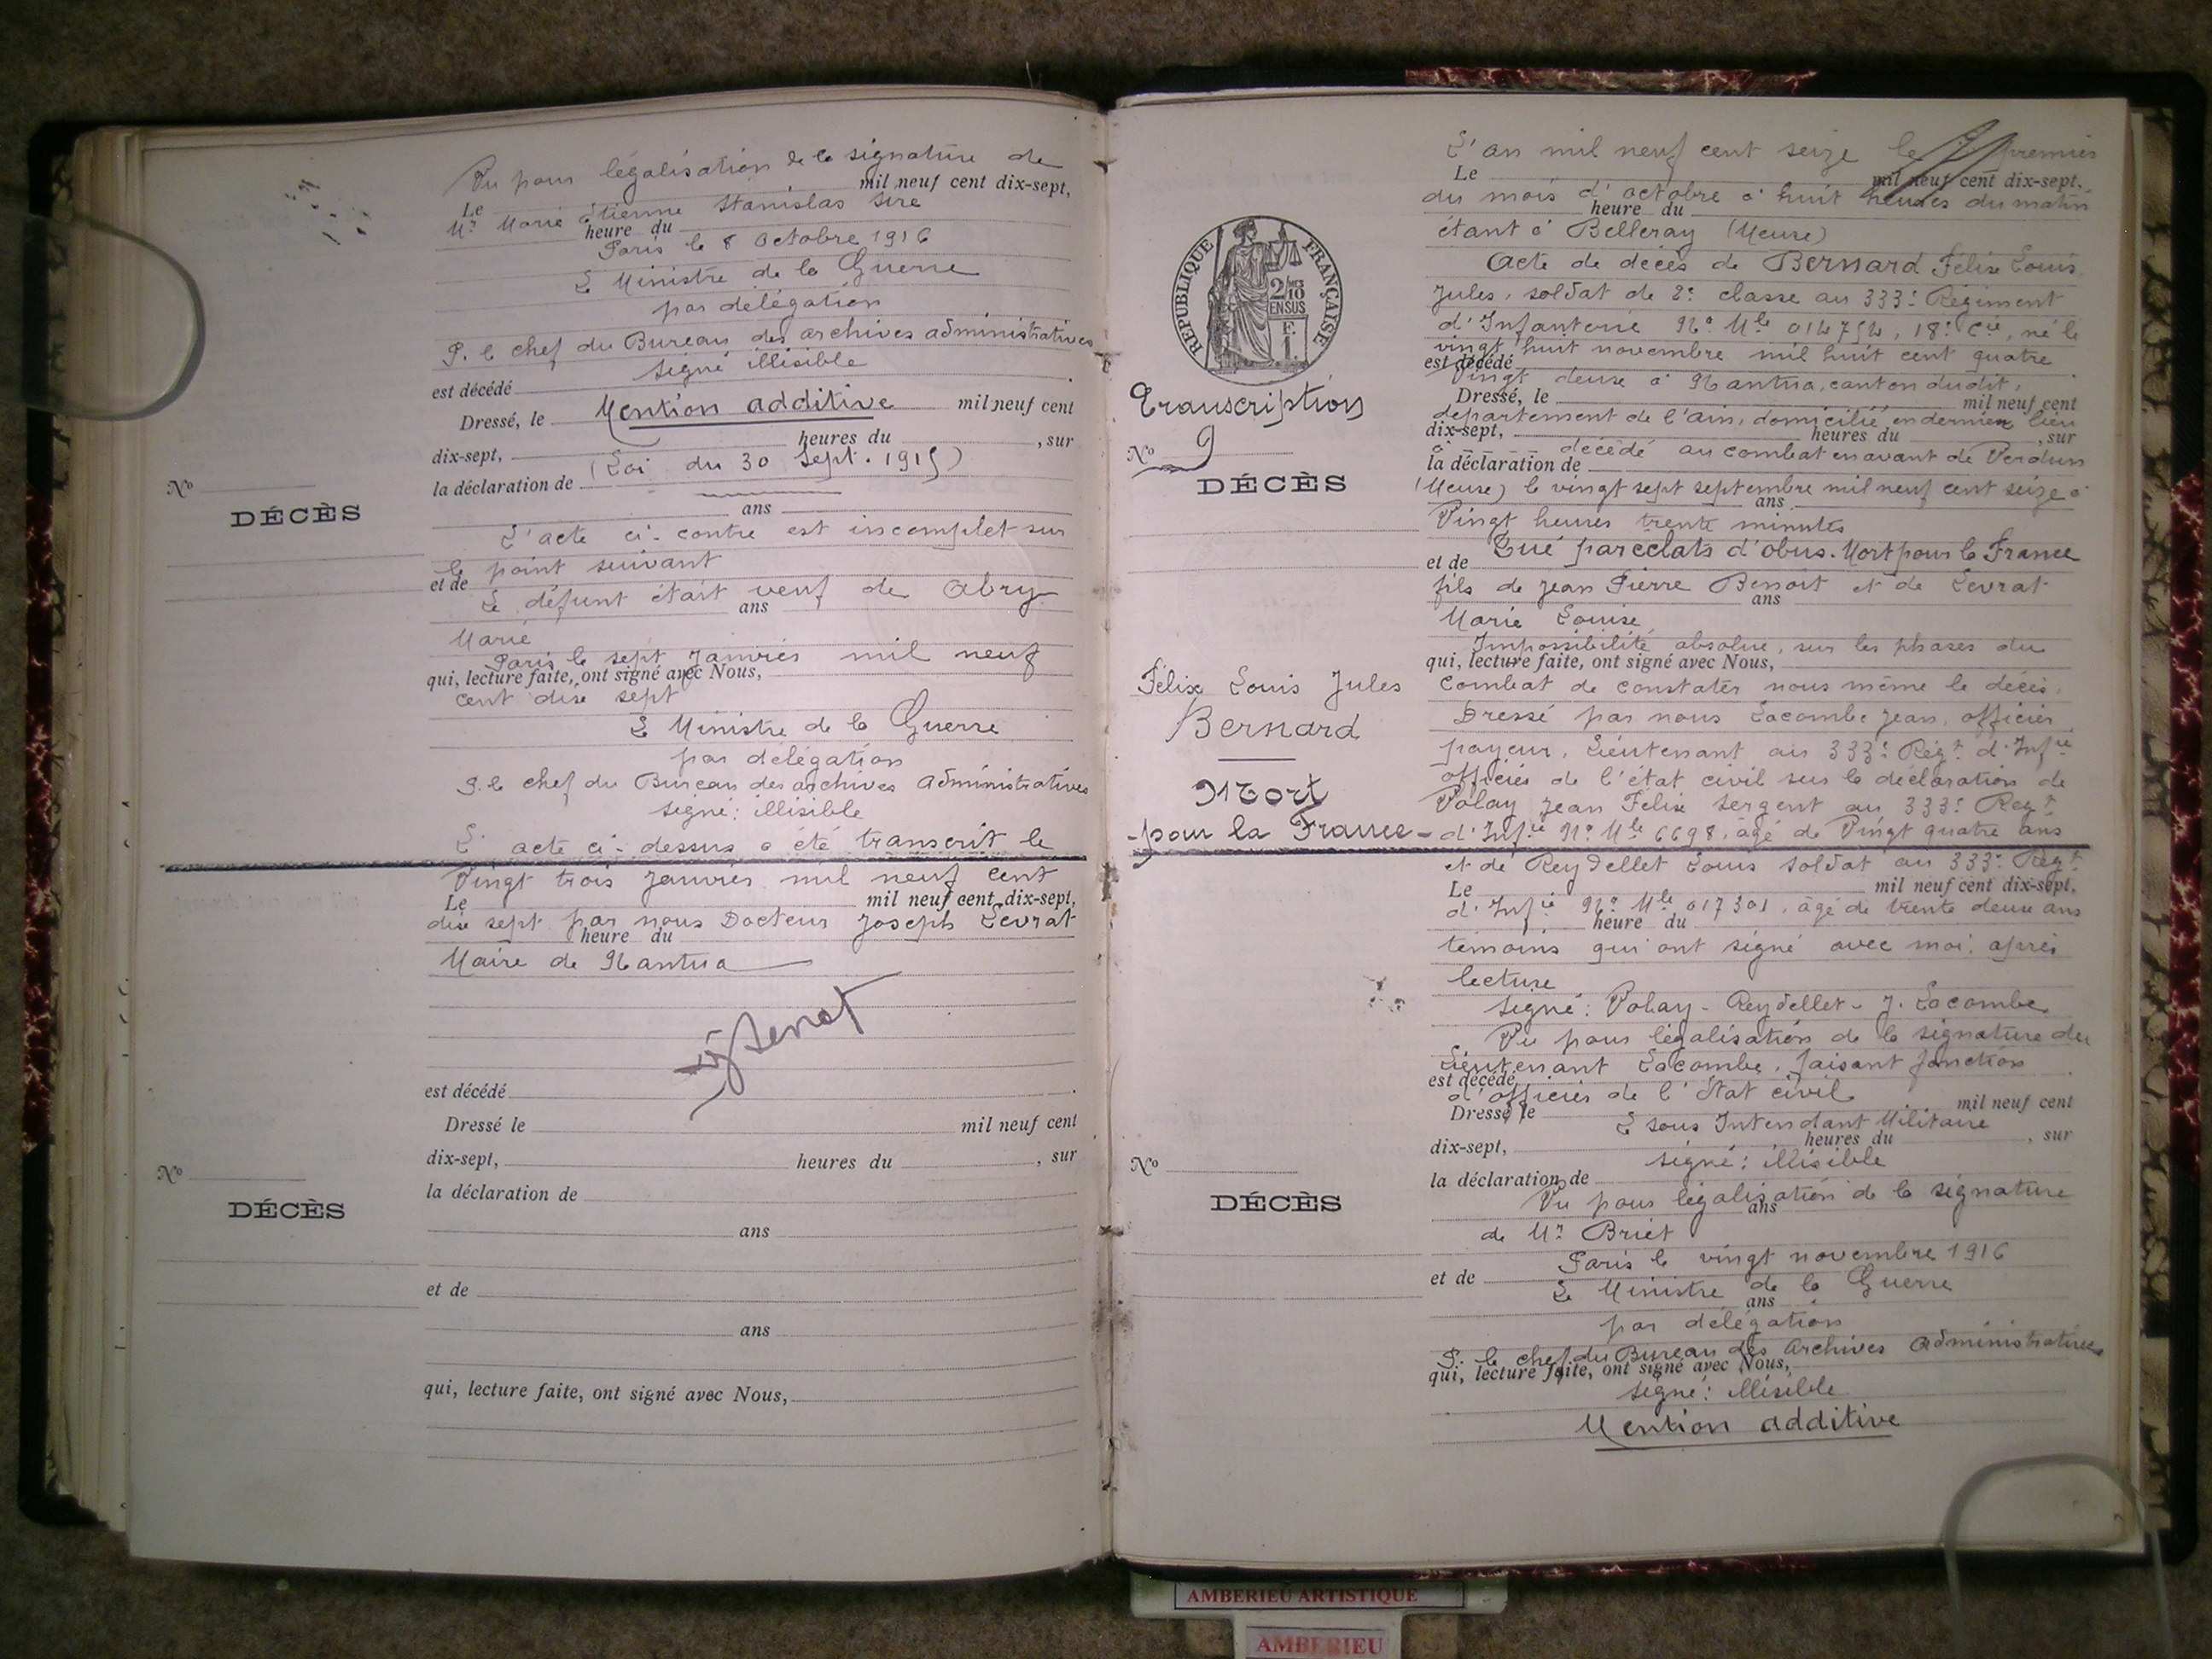 Vu pour légalisation de la signature de
Le mil neuf cent dix-sept,
Mr Marie Etienne Stanislas Sire
heure du
Paris le 8 Octobre 1916
Le Ministre de la Guerre
par délégation
P. le chef du Bureau des archives administratives
signé illisible
est décédé
Dressé, le Mention additive mil neuf cent
dix-sept, heures du , sur
(Loi du 30 Sept. 1915)
la déclaration de
ans
L'acte ci-contre est incomplet sur
le point suivant
et de
Le défunt était veuf de Abry
ans
Marie
Paris le sept Janvier mil neuf
qui, lecture faite, ont signé avec Nous,
cent dix sept
Le Ministre de la Guerre
par délégation
P. le chef du Bureau des archives Administratives
signé: illisible
L'acte ci-dessus a été transcrit le
No
DÉCÈS
Vingt trois Janvier mil neuf cent
Le mil neuf cent dix-sept,
dix sept par nous Docteur Joseph Levrat
heure du
Maire de Nantua
est décédé
Dressé le mil neuf cent
dix-sept, heures du , sur
la déclaration de
ans
et de
ans
qui, lecture faite, ont signé avec Nous,
No
DÉCÈS
REPUBLIQUE FRANÇAISE
2/10 EN SUS
Transcription
No 9
DÉCÈS
Félix Louis Jules
Bernard
Mort
-pour la France-
L'an mil neuf cent seize le premier
Le mil neuf cent dix-sept,
du mois d'octobre à huit heures du matin
heure du
étant à Belleray (Meuse)
Acte de décès de Bernard Félix Louis
Jules, soldat de 2e classe au 333e Régiment
d'Infanterie No Mle 014754, 18e Cie, né le
vingt huit novembre mil huit cent quatre
est décédé
Vingt deux à Nantua, canton dudit,
Dressé, le mil neuf cent
département de l'ain, domicilié en dernier lieu
dix-sept, heures du , sur
à - - - - décédé au combat en avant de Verdun
la déclaration de
(Meuse) le vingt sept septembre mil neuf cent seize à
ans
Vingt heures trente minutes
Tué par éclats d'obus. Mort pour la France
et de
fils de Jean Pierre Benoit et de Levrat
ans
Marie Louise
Impossibilité absolue, sur les phases du
qui, lecture faite, ont signé avec Nous,
combat de constater nous même le décès.
Dressé par nous Lacombe Jean, officier
payeur, Lieutenant au 333e Régt d'Infie
officier de l'état civil sur la déclaration de
Volay Jean Félix Sergent au 333e Regt
d'Infie No Mle 6698, âgé de Vingt quatre ans
et de Reydellet Louis soldat au 333e Regt
Le mil neuf cent dix-sept,
d'Infie No Mle 017301, âgé de trente deux ans
heure du
témoins qui ont signé avec moi, après
lecture
signé: Volay - Reydellet - J. Lacombe
Vu pour légalisation de la signature du
Lieutenant Lacombe, faisant fonction
est décédé
d'officier de l'Etat civil
Dressé le mil neuf cent
Le sous Intendant Militaire
dix-sept, heures du , sur
signé: illisible
la déclaration de
Vu pour légalisation de la signature
ans
de Mr Briet
Paris le vingt novembre 1916
et de
Le Ministre de la Guerre
ans
par délégation
P. le chef du Bureau des Archives Administratives
qui, lecture faite, ont signé avec Nous,
signé: illisible
Mention additive
No
DÉCÈS
AMBERIEU ARTISTIQUE
AMBERIEU